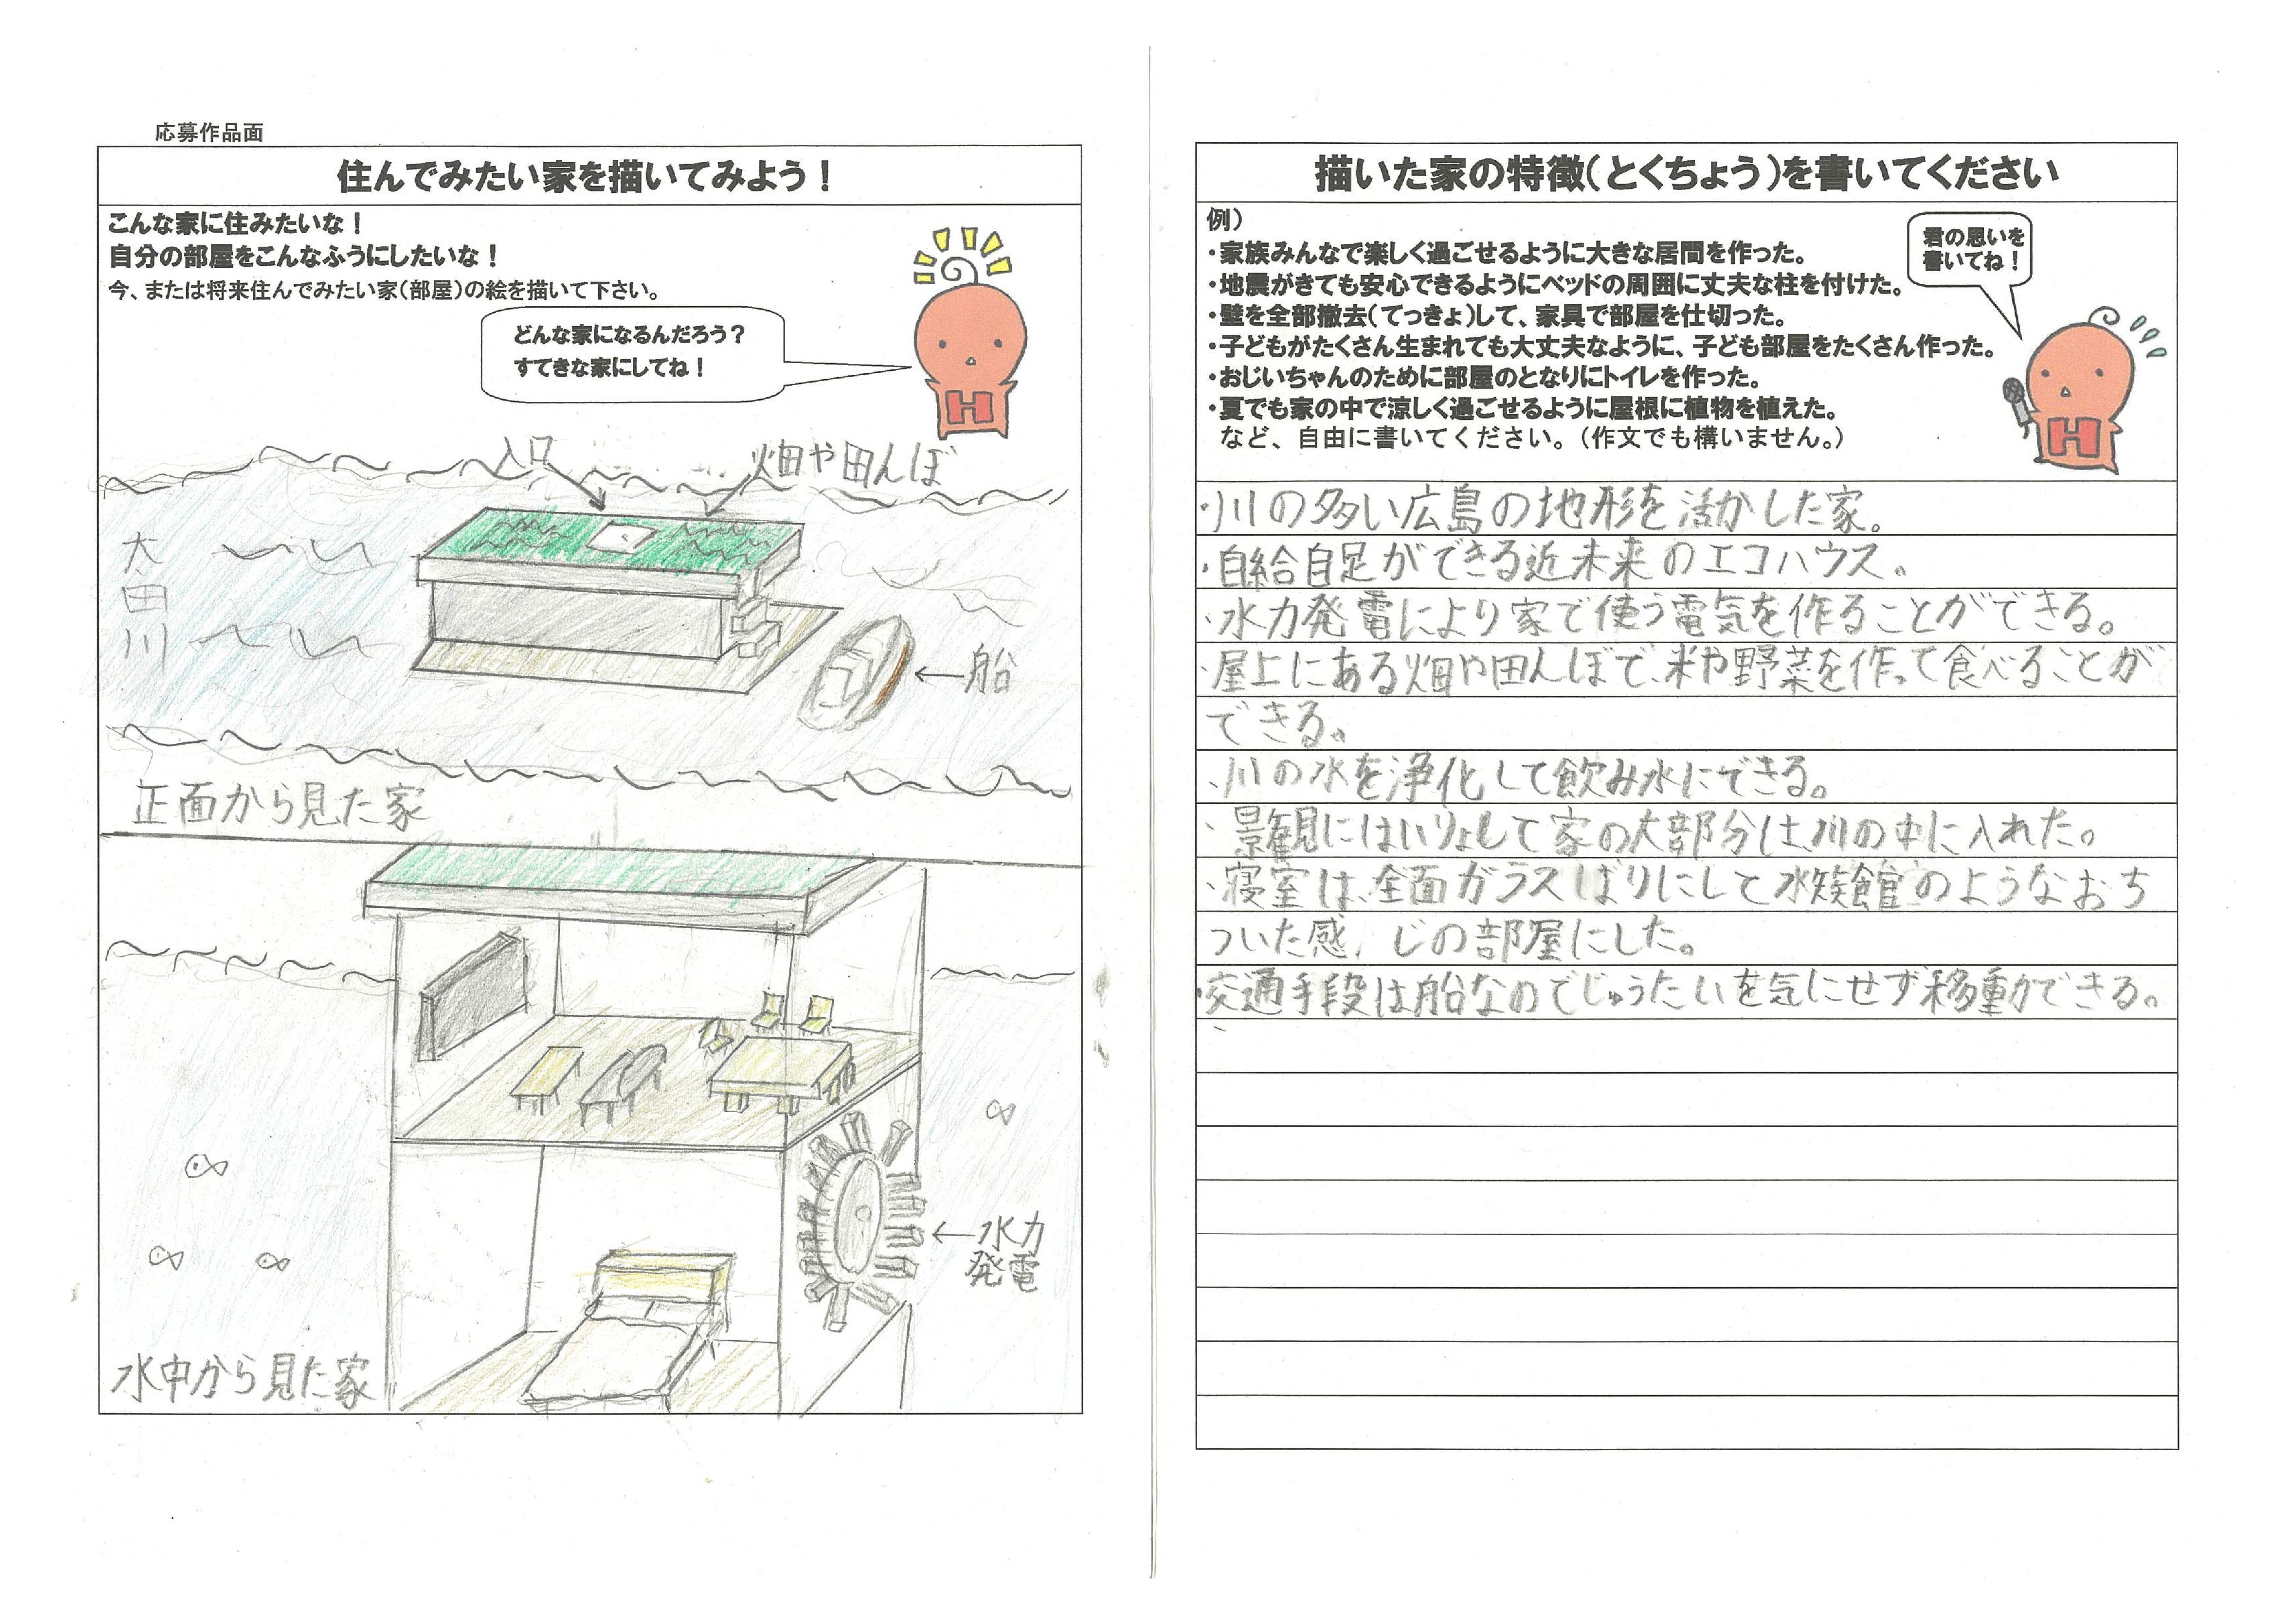 応募作品面
住んでみたい家を描いてみよう！
こんな家に住みたいな！
自分の部屋をこんなふうにしたいな！
今、または将来住んでみたい家（部屋）の絵を描いて下さい。
どんな家になるんだろう？
すてきな家にしてね！
H
入口
畑や田んぼ
太田川
←船
正面から見た家
←水力
発電
水中から見た家
描いた家の特徴（とくちょう）を書いてください
例）
・家族みんなで楽しく過ごせるように大きな居間を作った。
・地震がきても安心できるようにベッドの周囲に丈夫な柱を付けた。
・壁を全部撤去（てっきょ）して、家具で部屋を仕切った。
・子どもがたくさん生まれても大丈夫なように、子ども部屋をたくさん作った。
・おじいちゃんのために部屋のとなりにトイレを作った。
・夏でも家の中で涼しく過ごせるように屋根に植物を植えた。
など、自由に書いてください。（作文でも構いません。）
君の思いを
書いてね！
H
・川の多い広島の地形を活かした家。
・自給自足ができる近未来のエコハウス。
・水力発電により家で使う電気を作ることができる。
・屋上にある畑や田んぼで、米や野菜を作って食べることが
できる。
・川の水を浄化して飲み水にできる。
・景観にはいりょして家の大部分は、川の中に入れた。
・寝室は、全面ガラスばりにして水族館のようなおち
ついた感じの部屋にした。
・交通手段は船なのでじゅうたいを気にせず移動ができる。